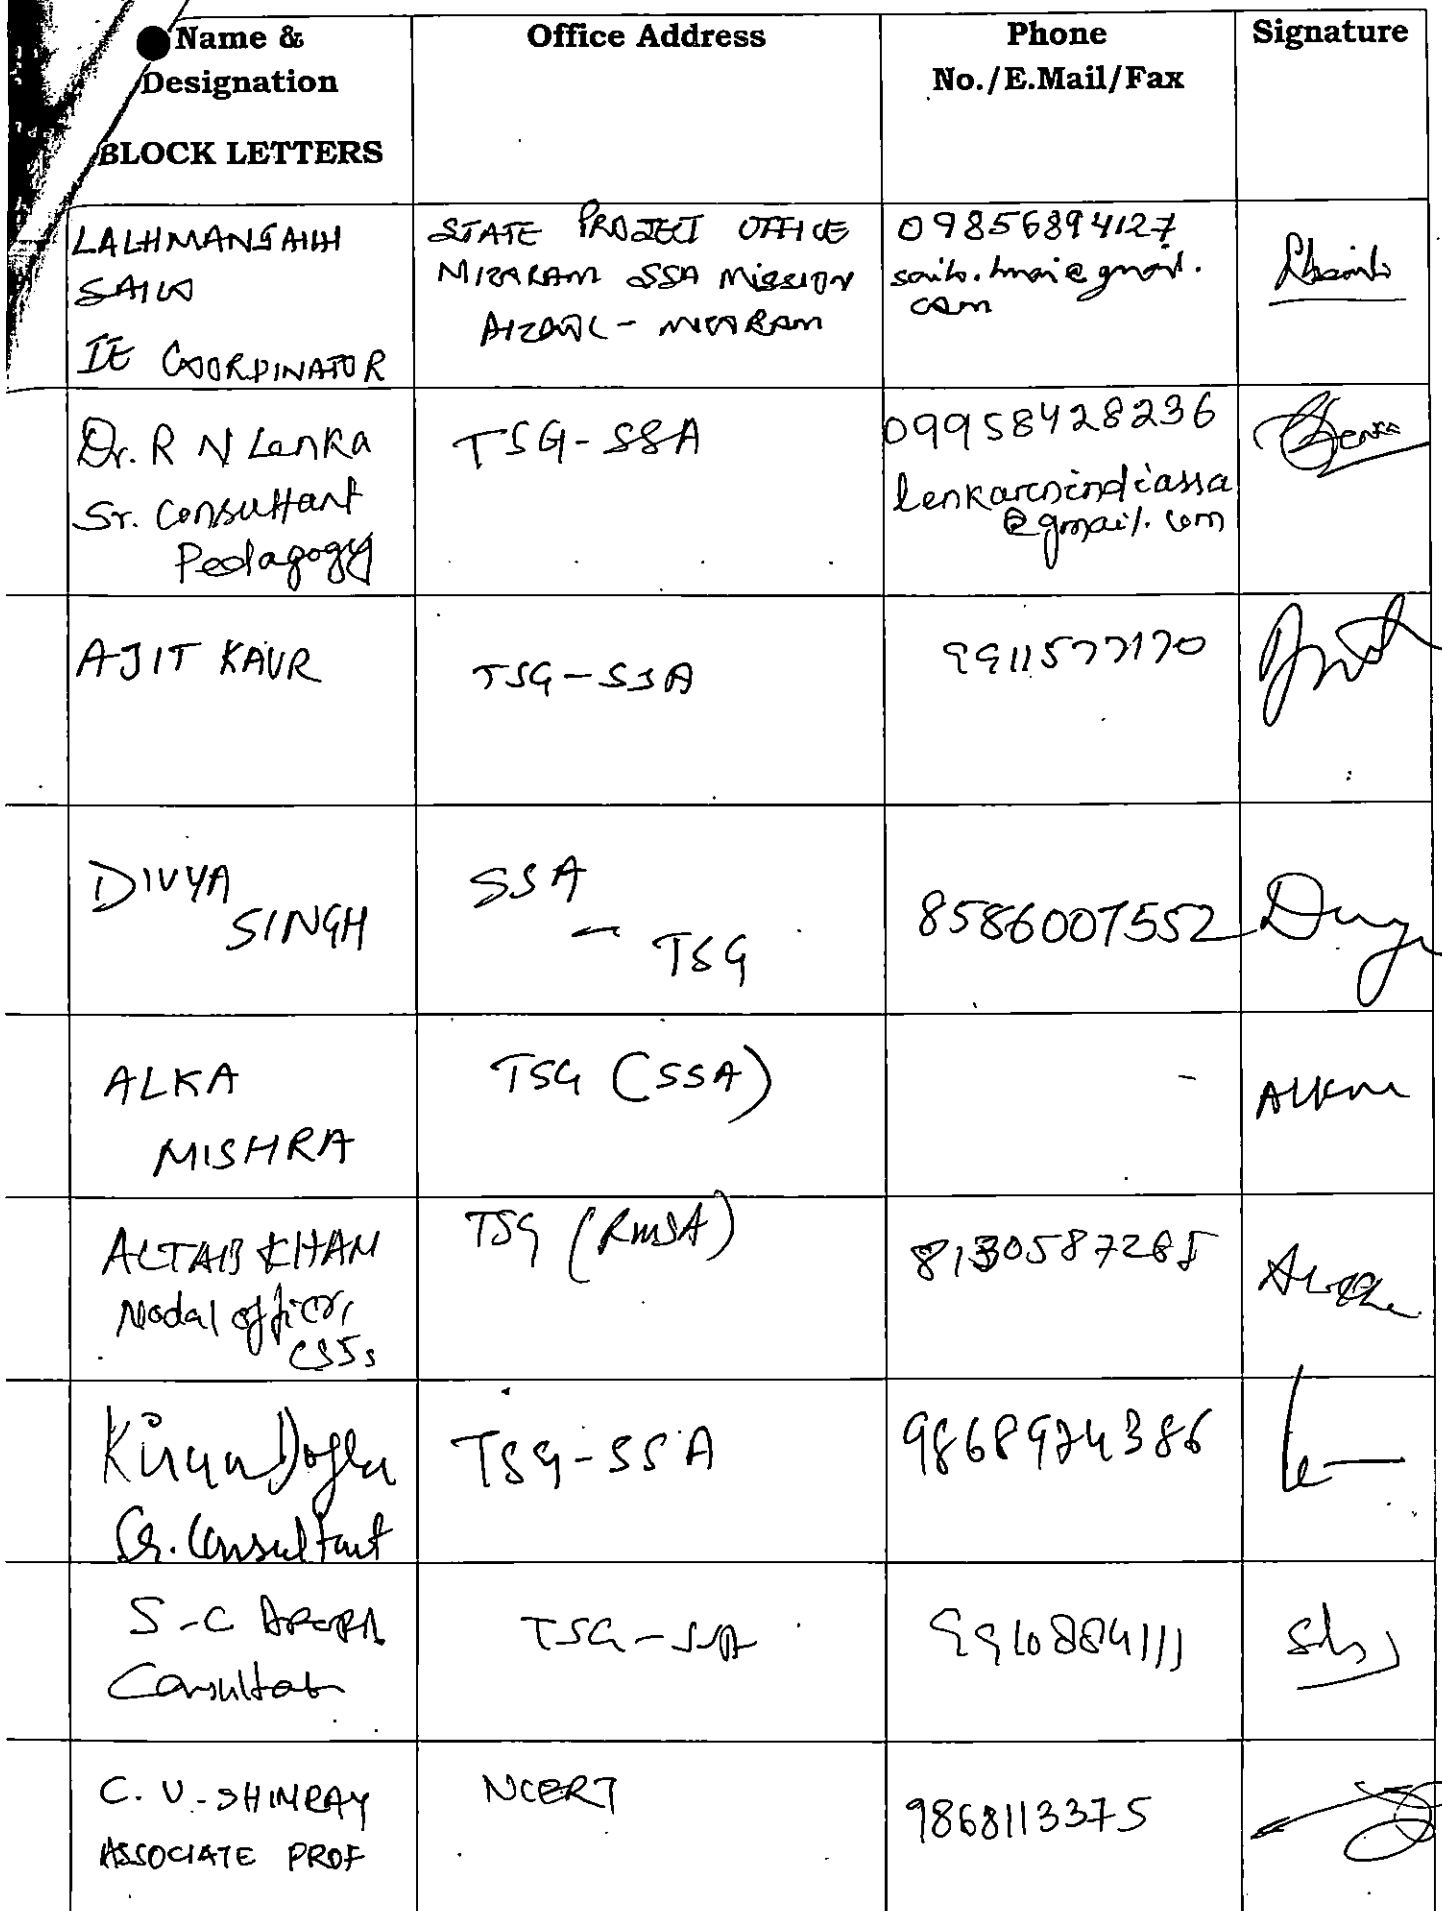 Name &
Designation
BLOCK LETTERS
Office Address
Phone
No./E.Mail/Fax
Signature
SAILO
IE COORDINATOR
STATE PROJECT OFFICE
MIZORAM SSA MISSION
AIZAWL - MIZORAM
09856894127
Dr. R N Lenka
Sr. Consultant
Pedagogy
TSG-SSA
09958428236
@gmail.com
AJIT KAUR
TSG-SSA
9911577170
DIVYA
SINGH
SSA
- TSG
8586007552
ALKA
MISHRA
TSG (SSA)
-
KHAN
Nodal officer,
CSSs
TSG (RMSA)
Kiran Dogra
Sr. Consultant
TSG-SSA
9868974386
S-C ARORA
Consultant
TSG-SSA
C. V. SHIMRAY
ASSOCIATE PROF
NCERT
9868113375